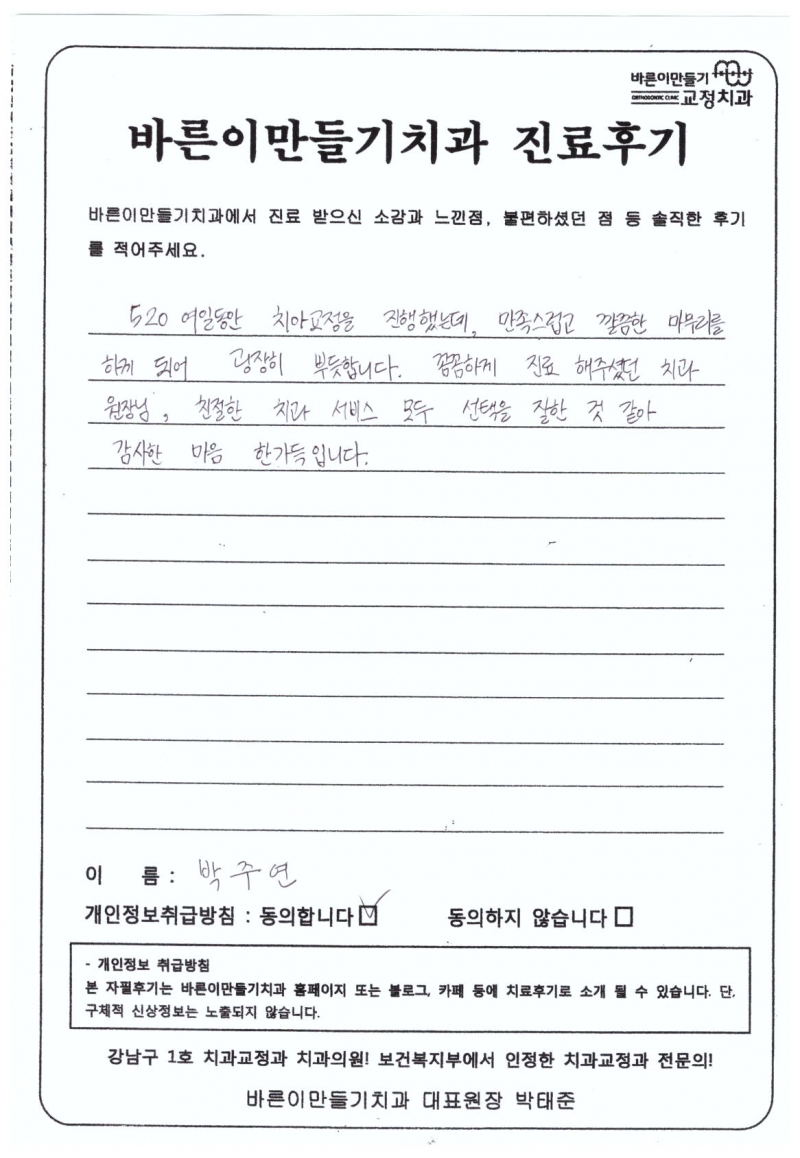 바른이만들기
ORTHODONTIC CLINIC 교정치과
바른이만들기치과 진료후기
바른이만들기치과에서 진료 받으신 소감과 느낀점, 불편하셨던 점 등 솔직한 후기
를 적어주세요.
520 여일동안 치아교정을 진행했는데, 만족스럽고 깔끔한 마무리를
하게 되어 굉장히 뿌듯합니다. 꼼꼼하게 진료 해주셨던 치과
원장님, 친절한 치과 서비스 모두 선택을 잘한 것 같아
감사한 마음 한가득입니다.
이 름 : 박주연
개인정보취급방침 : 동의합니다 ☑ 동의하지 않습니다 □
- 개인정보 취급방침
본 자필후기는 바른이만들기치과 홈페이지 또는 블로그, 카페 등에 치료후기로 소개 될 수 있습니다. 단,
구체적 신상정보는 노출되지 않습니다.
강남구 1호 치과교정과 치과의원! 보건복지부에서 인정한 치과교정과 전문의!
바른이만들기치과 대표원장 박태준